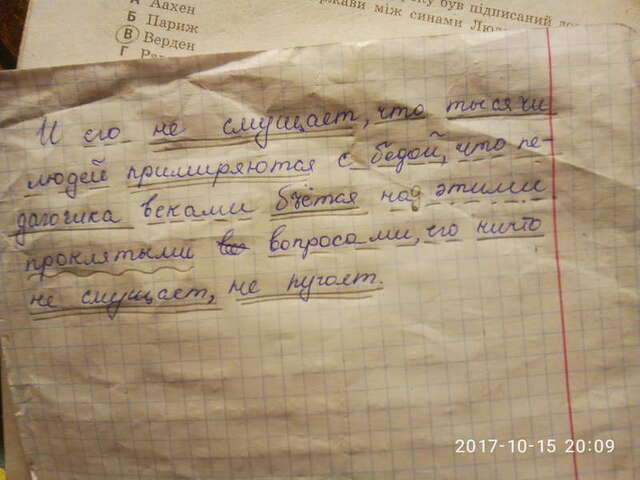 А Аахен
Б Париж
В Верден
Г
був підписаний
між синами
И его не смущает, что тысячи
людей примиряются с бедой, что пе-
дагогика веками бьётся над этими
проклятыми вопросами, его ничто
не смущает, не пугает.
2017-10-15 20:09